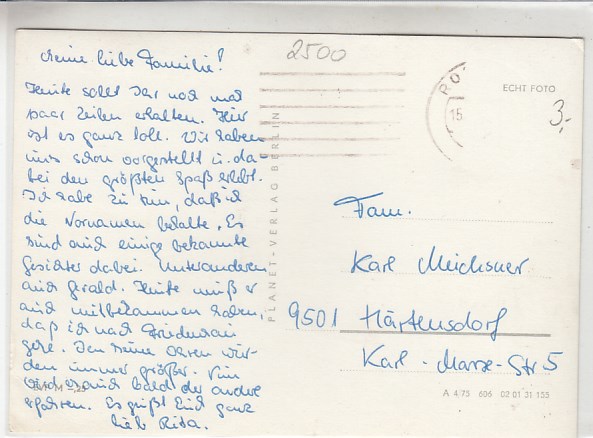 Meine liebe Familie!
Heute sollt Ihr noch mal
paar Zeilen erhalten. Hier
ist es ganz toll. Wir haben
uns schon vorgestellt u. da-
bei den größten Spaß erlebt.
Ich habe zu tun, daß ich
die Vornamen behalte. Es
sind auch einige bekannte
Gesichter dabei. Unteranderem
auch Gerald. Heute muß er
auch mitbekommen haben,
daß ich nach
gehe. Ohren wür-
den immer größer. Nun
wird es auch bald der andere
erfahren. Es grüßt Euch ganz
lieb Rita.
2500
RO
15
ECHT FOTO
3,-
PLANET-VERLAG BERLIN
Fam.
Karl Meichsner
9501 Härtensdorf
Karl-Marx-Str 5
A 4/75 606 02 01 31 155